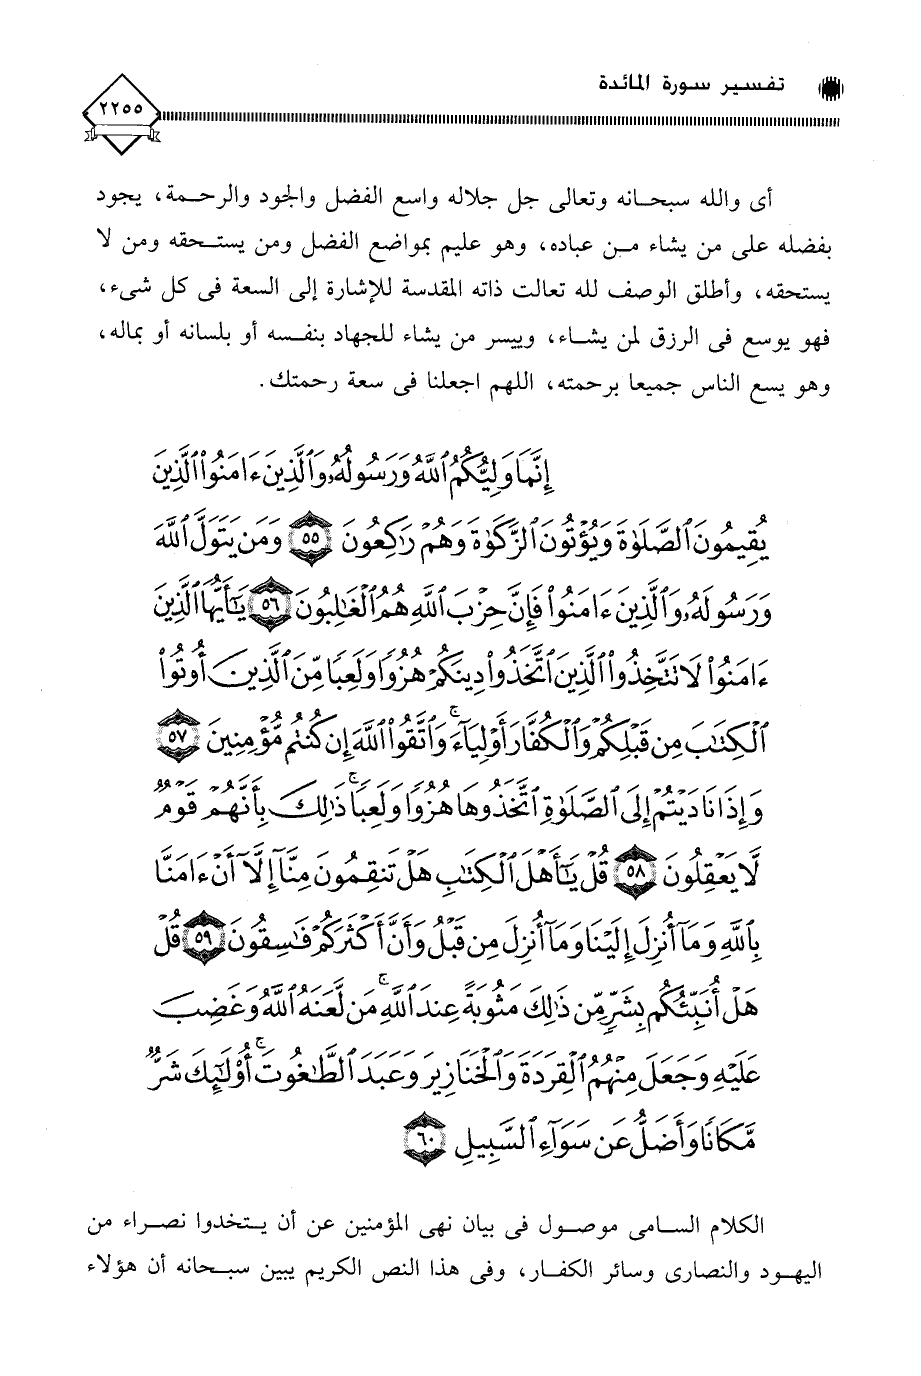 تفسير سورة المائدة
٢٢٥٥
أى والله سبحانه وتعالى جل جلاله واسع الفضل والجود والرحمة، يجود
بفضله على من يشاء من عباده، وهو عليم بمواضع الفضل ومن يستحقه ومن لا
يستحقه، وأطلق الوصف لله تعالت ذاته المقدسة للإشارة إلى السعة فى كل شىء،
فهو يوسع فى الرزق لمن يشاء، وييسر من يشاء للجهاد بنفسه أو بلسانه أو بماله،
وهو يسع الناس جميعا برحمته، اللهم اجعلنا فى سعة رحمتك.
إِنَّمَا وَلِيُّكُمُ ٱللَّهُ وَرَسُولُهُۥ وَٱلَّذِينَ ءَامَنُوا۟ ٱلَّذِينَ
يُقِيمُونَ ٱلصَّلَوٰةَ وَيُؤْتُونَ ٱلزَّكَوٰةَ وَهُمْ رَٰكِعُونَ ٥٥ وَمَن يَتَوَلَّ ٱللَّهَ
وَرَسُولَهُۥ وَٱلَّذِينَ ءَامَنُوا۟ فَإِنَّ حِزْبَ ٱللَّهِ هُمُ ٱلْغَٰلِبُونَ ٥٦ يَٰٓأَيُّهَا ٱلَّذِينَ
ءَامَنُوا۟ لَا تَتَّخِذُوا۟ ٱلَّذِينَ ٱتَّخَذُوا۟ دِينَكُمْ هُزُوًا وَلَعِبًا مِّنَ ٱلَّذِينَ أُوتُوا۟
ٱلْكِتَٰبَ مِن قَبْلِكُمْ وَٱلْكُفَّارَ أَوْلِيَآءَ ۚ وَٱتَّقُوا۟ ٱللَّهَ إِن كُنتُم مُّؤْمِنِينَ ٥٧
وَإِذَا نَادَيْتُمْ إِلَى ٱلصَّلَوٰةِ ٱتَّخَذُوهَا هُزُوًا وَلَعِبًا ۚ ذَٰلِكَ بِأَنَّهُمْ قَوْمٌ
لَّا يَعْقِلُونَ ٥٨ قُلْ يَٰٓأَهْلَ ٱلْكِتَٰبِ هَلْ تَنقِمُونَ مِنَّآ إِلَّآ أَنْ ءَامَنَّا
بِٱللَّهِ وَمَآ أُنزِلَ إِلَيْنَا وَمَآ أُنزِلَ مِن قَبْلُ وَأَنَّ أَكْثَرَكُمْ فَٰسِقُونَ ٥٩ قُلْ
هَلْ أُنَبِّئُكُم بِشَرٍّ مِّن ذَٰلِكَ مَثُوبَةً عِندَ ٱللَّهِ ۚ مَن لَّعَنَهُ ٱللَّهُ وَغَضِبَ
عَلَيْهِ وَجَعَلَ مِنْهُمُ ٱلْقِرَدَةَ وَٱلْخَنَازِيرَ وَعَبَدَ ٱلطَّٰغُوتَ ۚ أُو۟لَٰٓئِكَ شَرٌّ
مَّكَانًا وَأَضَلُّ عَن سَوَآءِ ٱلسَّبِيلِ ٦٠
الكلام السامى موصول فى بيان نهى المؤمنين عن أن يتخذوا نصراء من
اليهود والنصارى وسائر الكفار، وفى هذا النص الكريم يبين سبحانه أن هؤلاء